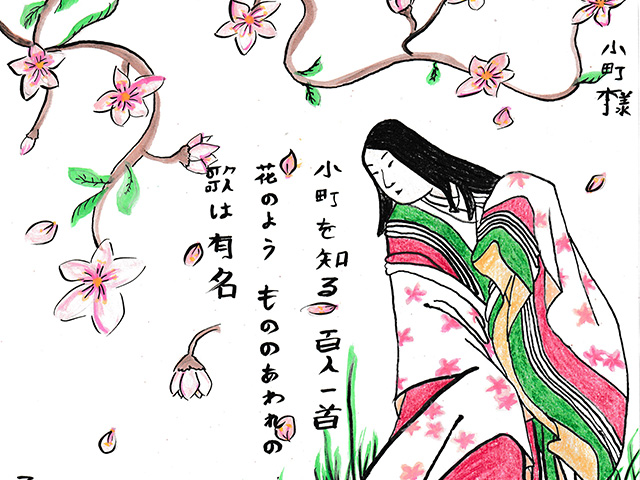 小町様
小町を知る 百人一首
花のよう もののあわれの
歌は有名